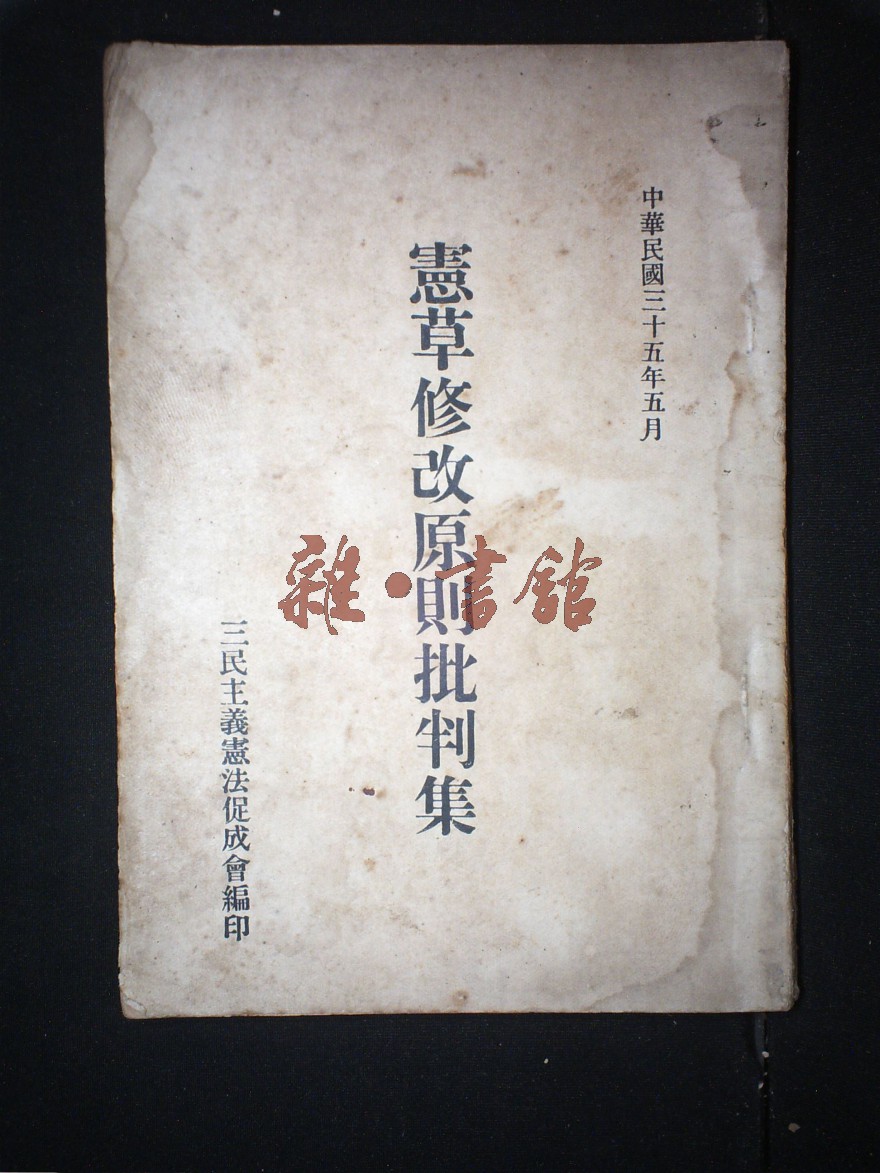 中華民國三十五年五月
憲草修改原則批判集
三民主義憲法促成會編印
雜·書館